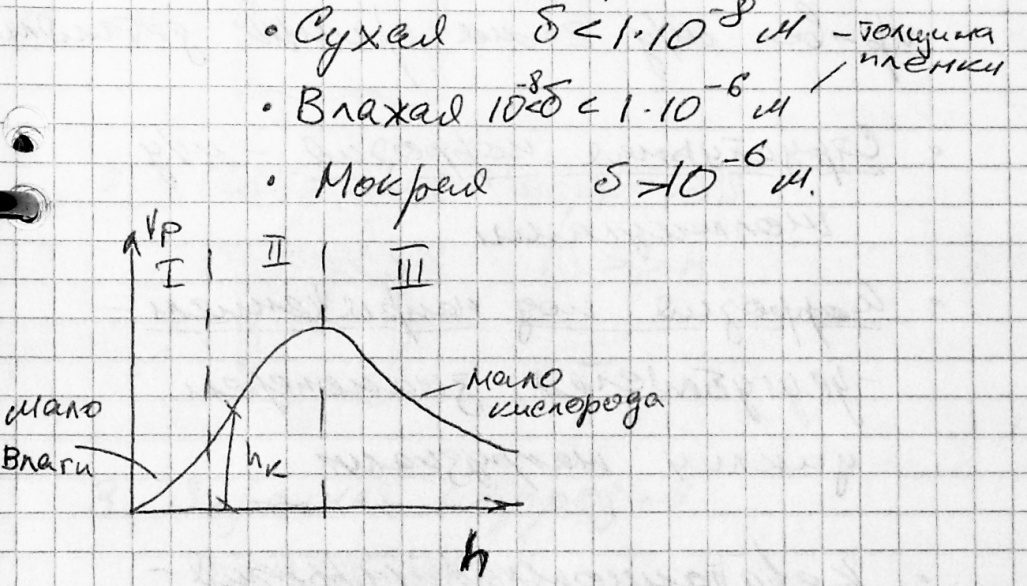 • Сухая δ < 1·10⁻⁸ м – толщина
пленки
• Влажая 10⁻⁸<δ < 1·10⁻⁶ м
• Мокрая δ >10⁻⁶ м.
Vр
I II III
мало
кислорода
мало
Влаги
hк
h